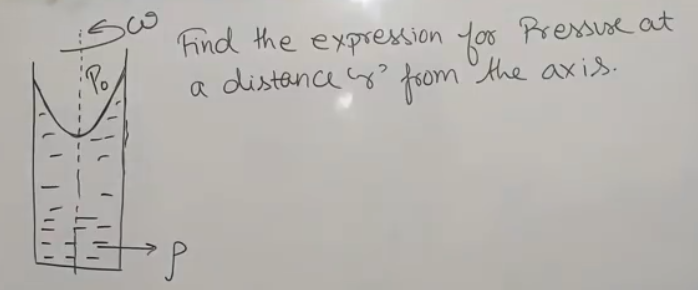 ω
Find the expression for Pressure at
a distance 'r' from the axis.
P₀
ρ